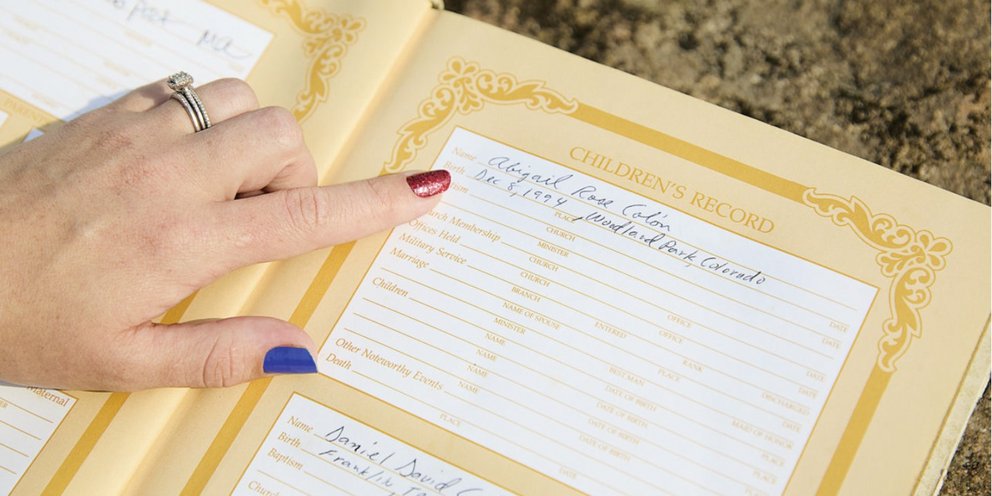 CHILDREN'S RECORD
Name Abigail Rose Colón
Birth Dec 8, 1994, Woodland Park, Colorado
PLACE DATE
CHURCH
Church Membership MINISTER OFFICE DATE
Offices Held CHURCH
Military Service CHURCH RANK
Marriage BRANCH ENTERED PLACE DATE
NAME OF SPOUSE DISCHARGED
Children MINISTER BEST MAN MAID OF HONOR
NAME DATE OF BIRTH PLACE
NAME DATE OF BIRTH PLACE
Other Noteworthy Events NAME DATE OF BIRTH PLACE
Death
PLACE DATE
Name Daniel David
Birth Franklin
Baptism
Maternal